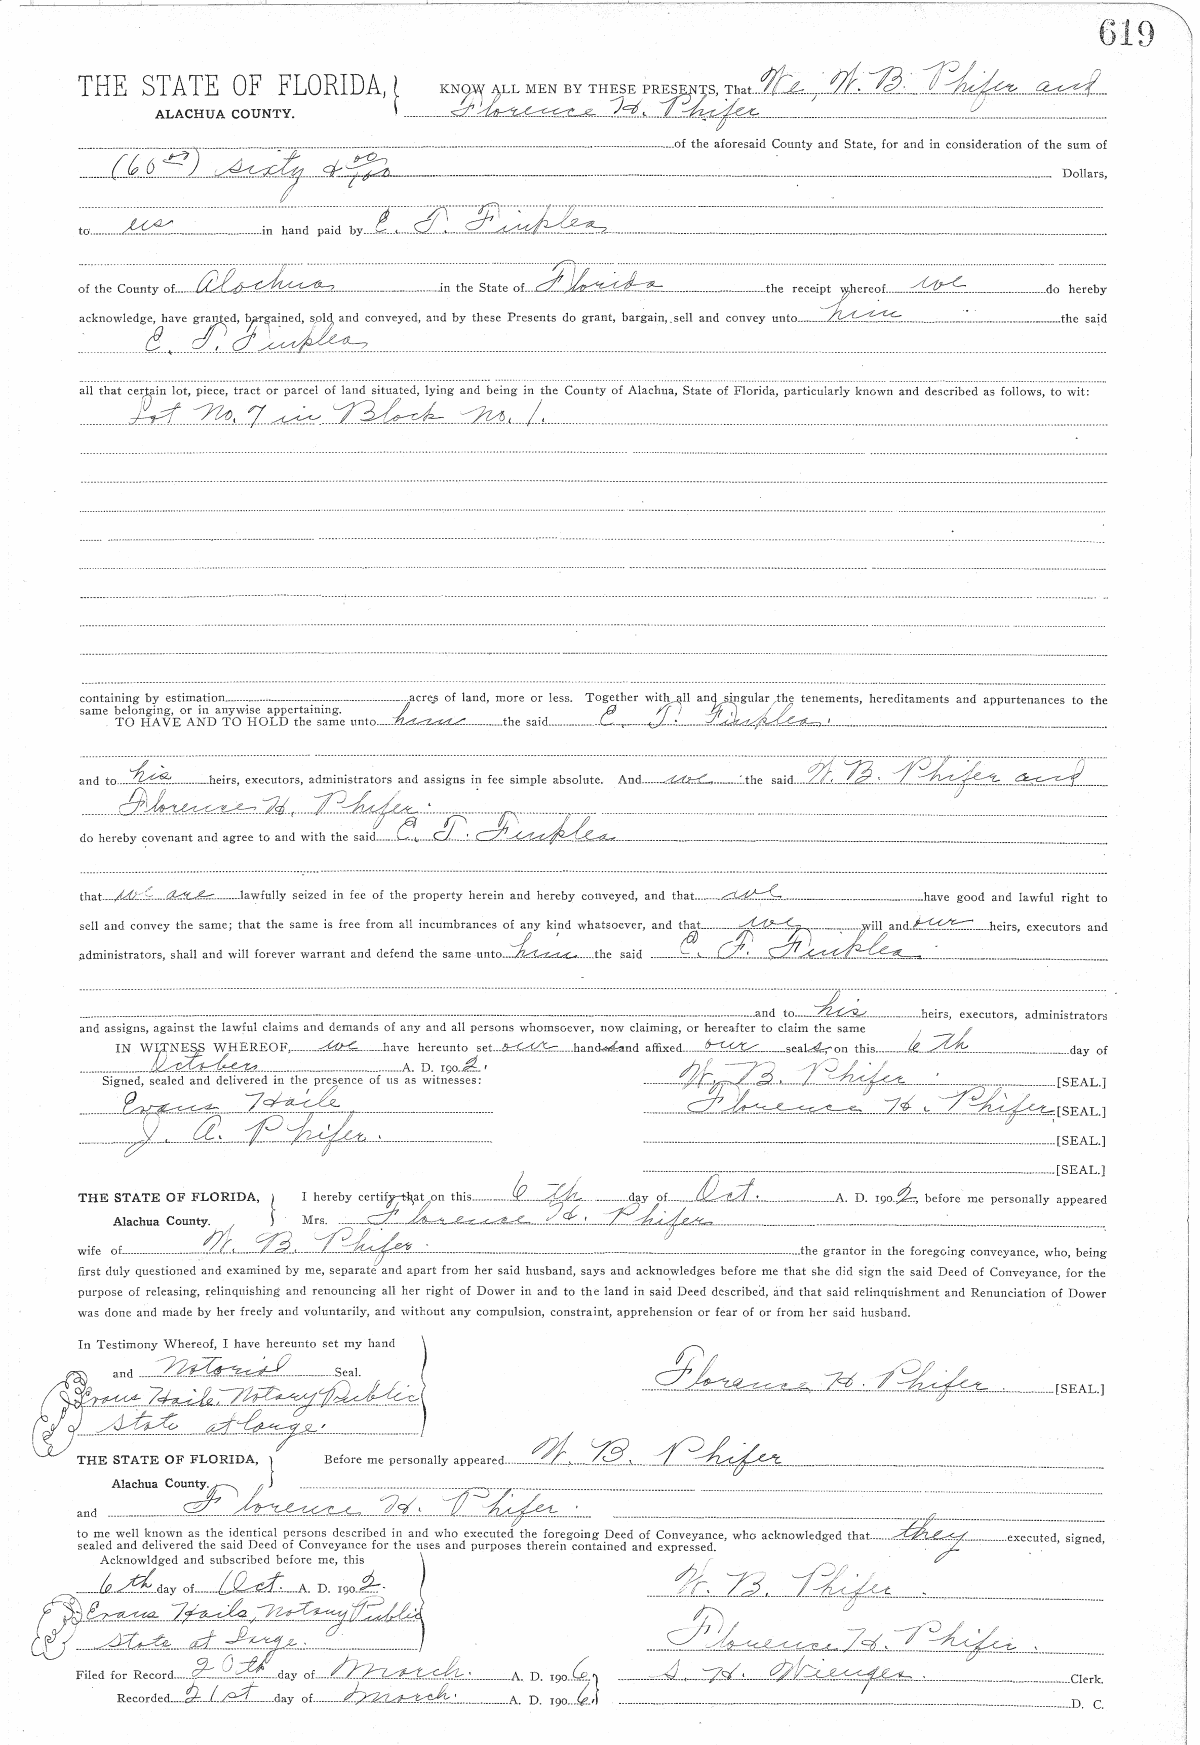 619
THE STATE OF FLORIDA, KNOW ALL MEN BY THESE PRESENTS, That We, W. B. Phifer and
ALACHUA COUNTY. Florence H. Phifer
of the aforesaid County and State, for and in consideration of the sum of
(60 00) sixty & 00/100 Dollars,
to us in hand paid by E. T. Finklea
of the County of Alachua in the State of Florida the receipt whereof we do hereby
acknowledge, have granted, bargained, sold and conveyed, and by these Presents do grant, bargain, sell and convey unto him the said
E. T. Finklea
all that certain lot, piece, tract or parcel of land situated, lying and being in the County of Alachua, State of Florida, particularly known and described as follows, to wit:
Lot No. 7 in Block No. 1.
containing by estimation acres of land, more or less. Together with all and singular the tenements, hereditaments and appurtenances to the
same belonging, or in anywise appertaining.
TO HAVE AND TO HOLD the same unto him the said E. T. Finklea.
and to his heirs, executors, administrators and assigns in fee simple absolute. And we the said W. B. Phifer and
Florence H. Phifer.
do hereby covenant and agree to and with the said E. T. Finklea
that we are lawfully seized in fee of the property herein and hereby conveyed, and that we have good and lawful right to
sell and convey the same; that the same is free from all incumbrances of any kind whatsoever, and that we will and our heirs, executors and
administrators, shall and will forever warrant and defend the same unto him the said E. F. Finklea
and to his heirs, executors, administrators
and assigns, against the lawful claims and demands of any and all persons whomsoever, now claiming, or hereafter to claim the same
IN WITNESS WHEREOF, we have hereunto set our hands and affixed our seals on this 6th day of
October A. D. 1902.
Signed, sealed and delivered in the presence of us as witnesses: W. B. Phifer [SEAL.]
Evans Haile Florence H. Phifer [SEAL.]
J. A. Phifer. [SEAL.]
[SEAL.]
THE STATE OF FLORIDA, I hereby certify that on this 6th day of Oct. A. D. 1902, before me personally appeared
Alachua County. Mrs. Florence H. Phifer
wife of W. B. Phifer. the grantor in the foregoing conveyance, who, being
first duly questioned and examined by me, separate and apart from her said husband, says and acknowledges before me that she did sign the said Deed of Conveyance, for the
purpose of releasing, relinquishing and renouncing all her right of Dower in and to the land in said Deed described, and that said relinquishment and Renunciation of Dower
was done and made by her freely and voluntarily, and without any compulsion, constraint, apprehension or fear of or from her said husband.
In Testimony Whereof, I have hereunto set my hand
and Notorial Seal. Florence H. Phifer. [SEAL.]
Seal Evans Haile, Notary Public
State at large.
THE STATE OF FLORIDA, Before me personally appeared W. B. Phifer
Alachua County.
and Florence H. Phifer.
to me well known as the identical persons described in and who executed the foregoing Deed of Conveyance, who acknowledged that they executed, signed,
sealed and delivered the said Deed of Conveyance for the uses and purposes therein contained and expressed.
Acknowldged and subscribed before me, this
6th day of Oct. A. D. 1902. W. B. Phifer.
Seal Evans Haile, Notary Public
State at Large. Florence H. Phifer.
Filed for Record 20th day of March. A. D. 1906 S. H. Wienges. Clerk.
Recorded 21st day of March. A. D. 1906. D. C.